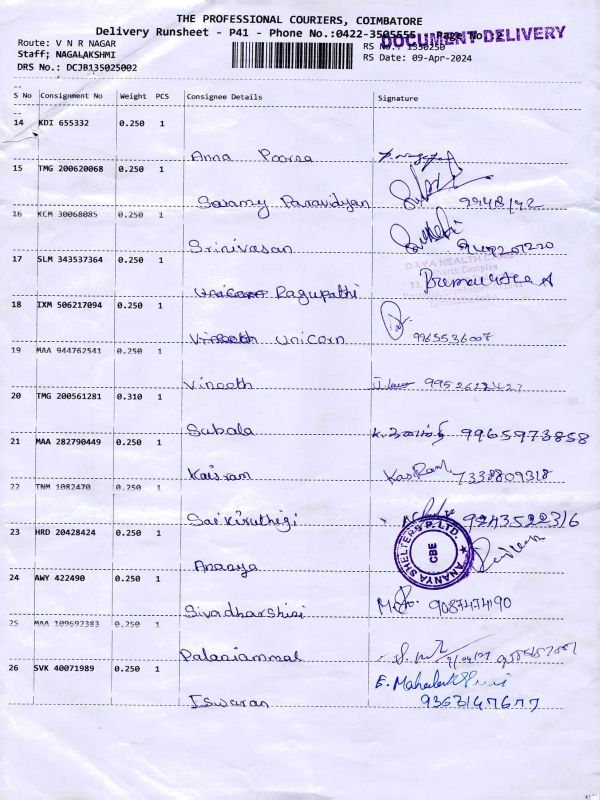 THE PROFESSIONAL COURIERS, COIMBATORE
Delivery Runsheet - P41 - Phone No.:0422-3505555 Page No. 2
DOCUMENT DELIVERY
Route: V N R NAGAR
Staff; NAGALAKSHMI
DRS No.: DCJB135025002
RS No.: 1350250
RS Date: 09-Apr-2024
S No Consignment No Weight PCS Consignee Details Signature
14 KDI 655332 0.250 1
Anna Poorna
15 TMG 200620068 0.250 1
Swamy Paravidyan
16 KCM 30068085 0.250 1
Srinivasan
17 SLM 343537364 0.250 1
DAYA HEALTH CARE
Complex
Unicorn Ragupathi
18 IXM 506217094 0.250 1
Vineoth Unicorn 9965536007
19 MAA 944762541 0.250 1
Vineoth
20 TMG 200561281 0.310 1
Subala 9965973858
21 MAA 282790449 0.250 1
Kaisram KasRam 7338809318
22 TNM 1082470 0.250 1
Saikiruthigi 9743522316
23 HRD 20428424 0.250 1
ANANYA SHELTERS P. LTD.
CBE
Ananya
24 AWY 422490 0.250 1
Sivadharshini 9087474190
25 MAA 109692383 0.250 1
Palaniammal
26 SVK 40071989 0.250 1
E. Mahalakshmi
Iswaran 9363147677